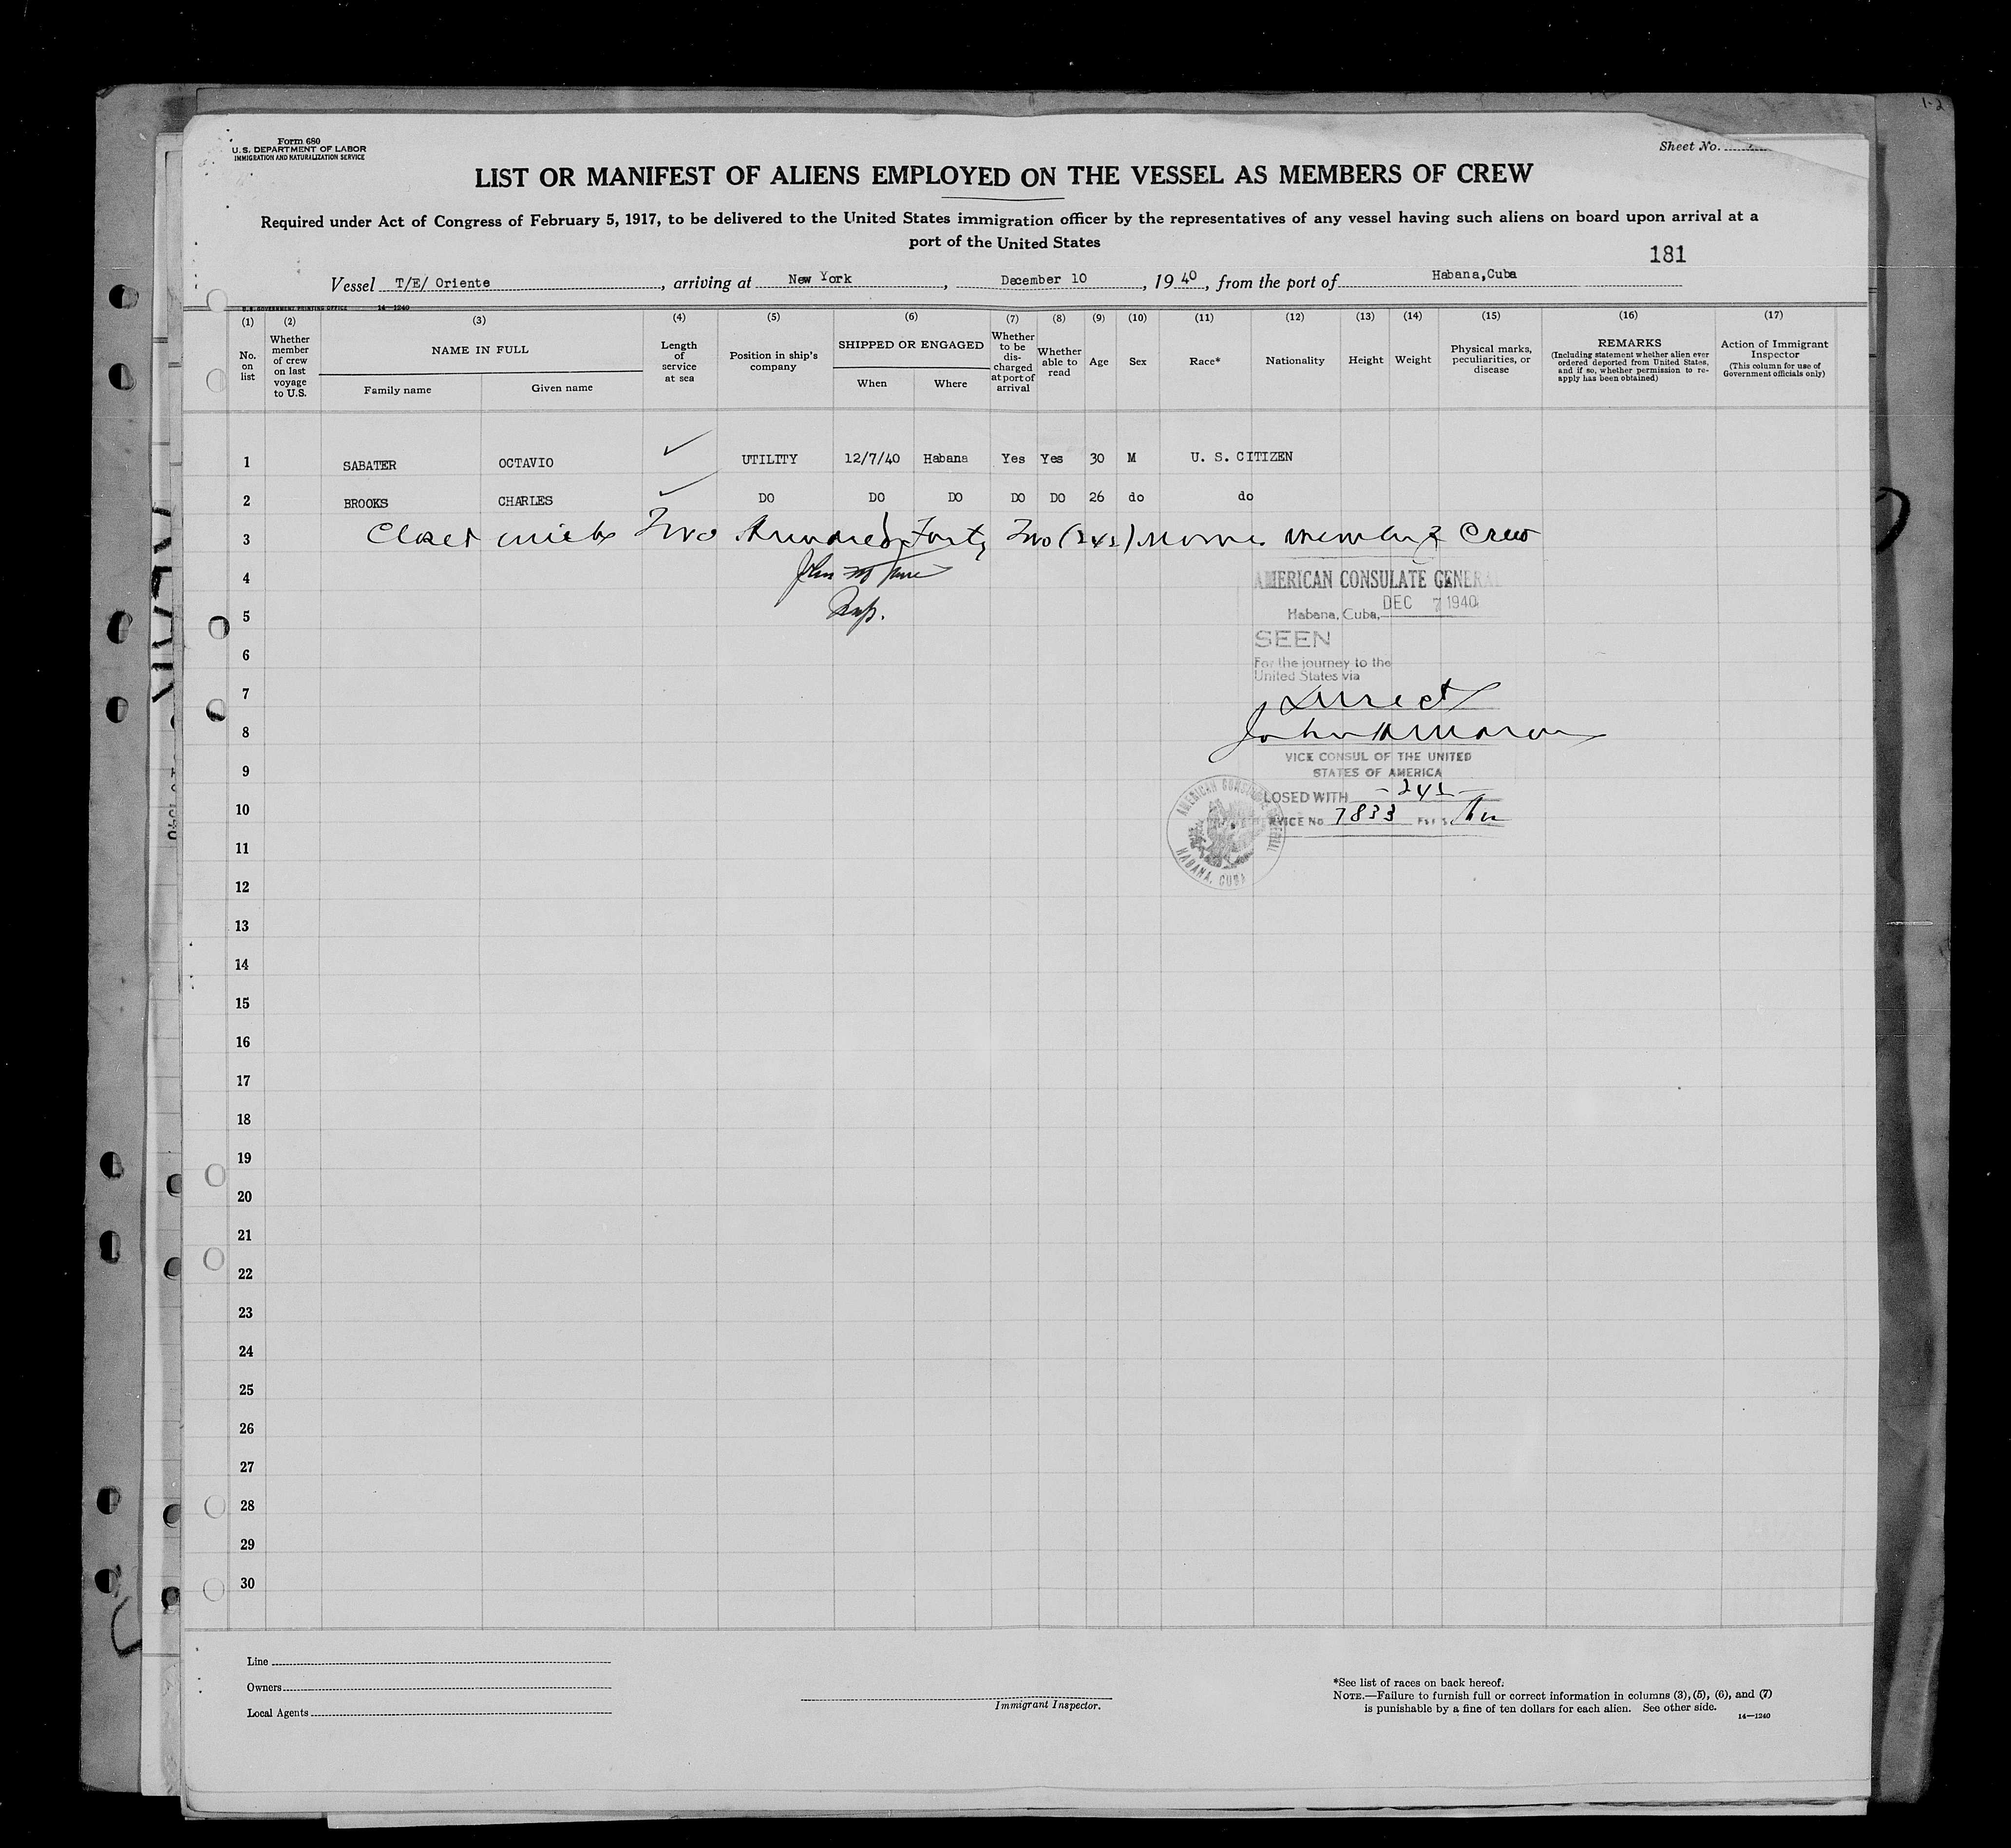 1-2
Form 680
U. S. DEPARTMENT OF LABOR
IMMIGRATION AND NATURALIZATION SERVICE
Sheet No.
LIST OR MANIFEST OF ALIENS EMPLOYED ON THE VESSEL AS MEMBERS OF CREW
Required under Act of Congress of February 5, 1917, to be delivered to the United States immigration officer by the representatives of any vessel having such aliens on board upon arrival at a
port of the United States
181
Vessel T/E/ Oriente, arriving at New York, December 10, 1940, from the port of Habana,Cuba
U. S. GOVERNMENT PRINTING OFFICE 14-1240
(1) (2) (3) (4) (5) (6) (7) (8) (9) (10) (11) (12) (13) (14) (15) (16) (17)
No. on list
Whether member of crew on last voyage to U.S.
NAME IN FULL
Family name Given name
Length of service at sea
Position in ship's company
SHIPPED OR ENGAGED
When Where
Whether to be discharged at port of arrival
Whether able to read
Age
Sex
Race*
Nationality
Height
Weight
Physical marks, peculiarities, or disease
REMARKS
(Including statement whether alien ever ordered deported from United States, and if so, whether permission to reapply has been obtained)
Action of Immigrant Inspector
(This column for use of Government officials only)
1 SABATER OCTAVIO UTILITY 12/7/40 Habana Yes Yes 30 M U. S. CITIZEN
2 BROOKS CHARLES DO DO DO DO DO 26 do do
3 Closed with Two Hundred Forty Two (242) members Crew
4
AMERICAN CONSULATE GENERAL
5
Habana, Cuba, DEC 7 1940
SEEN
6
For the journey to the
United States via
7 Direct
8 John
9
VICE CONSUL OF THE UNITED
STATES OF AMERICA
LOSED WITH -242-
10
RVICE No. 7833
AMERICAN CONSULATE GENERAL
HABANA, CUBA
11
12
13
14
15
16
17
18
19
20
21
22
23
24
25
26
27
28
29
30
Line
Owners
Local Agents
Immigrant Inspector.
*See list of races on back hereof.
NOTE.—Failure to furnish full or correct information in columns (3), (5), (6), and (7)
is punishable by a fine of ten dollars for each alien. See other side.
14—1240